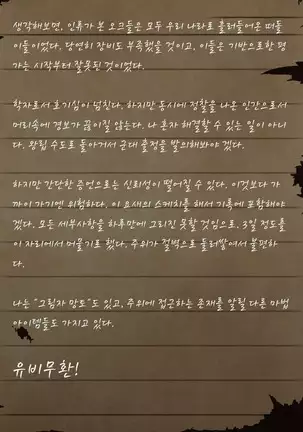 생각해보면, 인류가 본 오크들은 모두 우리 나라로 흘러들어온 떠돌
이들이었다. 당연히 장비도 부족했을 것이고, 이들을 기반으로한 평
가는 시작부터 잘못된 것이었다.
학자로서 호기심이 넘친다. 하지만 동시에 정찰을 나온 인간으로서
머리속에 경보가 끊이질 않는다. 나 혼자 해결할 수 있는 일이 아니
다. 왕립 수도로 돌아가서 군대 결정을 발의해봐야 겠다.
하지만 간단한 증언으로는 신뢰성이 떨어질 수 있다. 이것보다 가
까이 가기엔 위험하다. 이 요새의 스케치를 해서 기록에 포함해야
겠다. 모든 세부사항을 하루만에 그리진 못할 것임으로, 3일 정도를
이 자리에서 머물기로 했다. 주위가 절벽으로 둘러쌓여서 불편하
다.
나는 "그림자 망토"도 있고, 주위에 접근하는 존재를 알릴 다른 마법
아이템들도 가지고 있다.
유비무환!